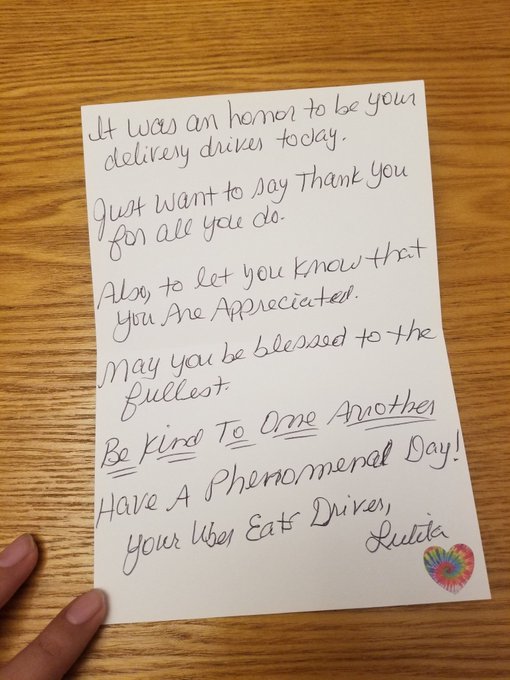 It was an honor to be your
delivery driver today.
Just want to say Thank You
for all you do.
Also, to let you know that
you Are Appreciated.
May you be blessed to the
fullest.
Be Kind To One Another
Have A Phenomenal Day!
Your Uber Eats Driver,
Lulita